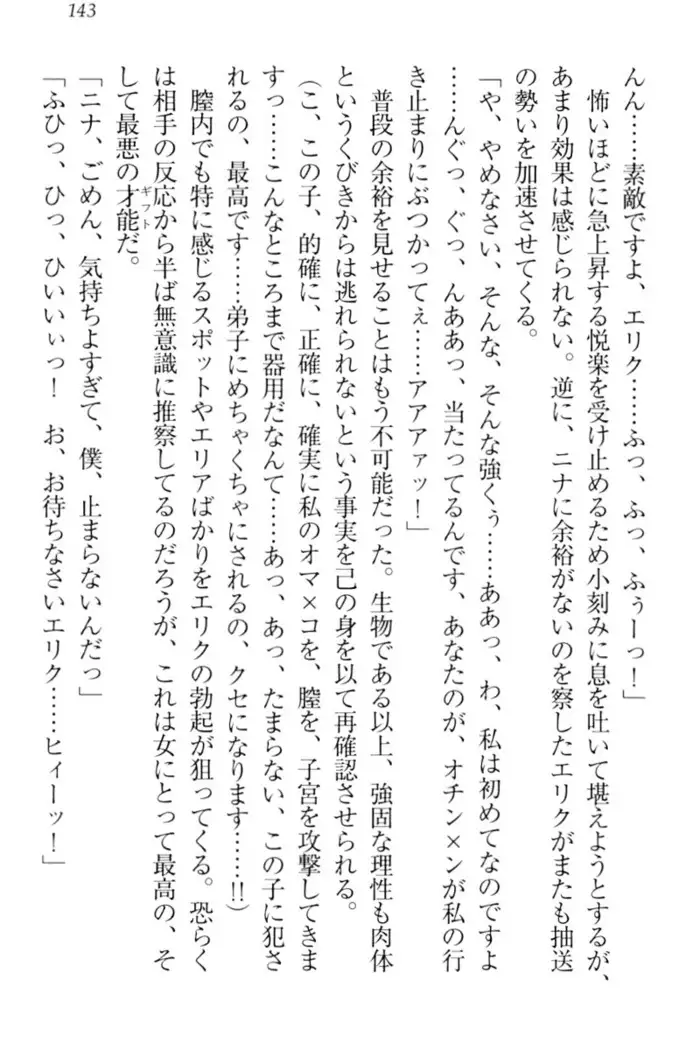 143
んん……素敵ですよ、エリク……ふっ、ふっ、ふぅーっ！」
　怖いほどに急上昇する悦楽を受け止めるため小刻みに息を吐いて堪えようとするが、
あまり効果は感じられない。逆に、ニナに余裕がないのを察したエリクがまたも抽送
の勢いを加速させてくる。
「や、やめなさい、そんな、そんな強くぅ……ああっ、わ、私は初めてなのですよ
……んぐっ、ぐっ、んああっ、当たってるんです、あなたのが、オチン×ンが私の行
き止まりにぶつかってぇ……アアアァッ！」
　普段の余裕を見せることはもう不可能だった。生物である以上、強固な理性も肉体
というくびきからは逃れられないという事実を己の身を以て再確認させられる。
（こ、この子、的確に、正確に、確実に私のオマ×コを、膣を、子宮を攻撃してきま
すっ……こんなところまで器用だなんて……あっ、あっ、たまらない、この子に犯さ
れるの、最高です……弟子にめちゃくちゃにされるの、クセになります……!!）
　膣内でも特に感じるスポットやエリアばかりをエリクの勃起が狙ってくる。恐らく
は相手の反応から半ば無意識に推察してるのだろうが、これは女にとって最高の、そ
して最悪の才能ギフトだ。
「ニナ、ごめん、気持ちよすぎて、僕、止まらないんだっ」
「ふひっ、ひっ、ひいいぃっ！　お、お待ちなさいエリク……ヒィーッ！」